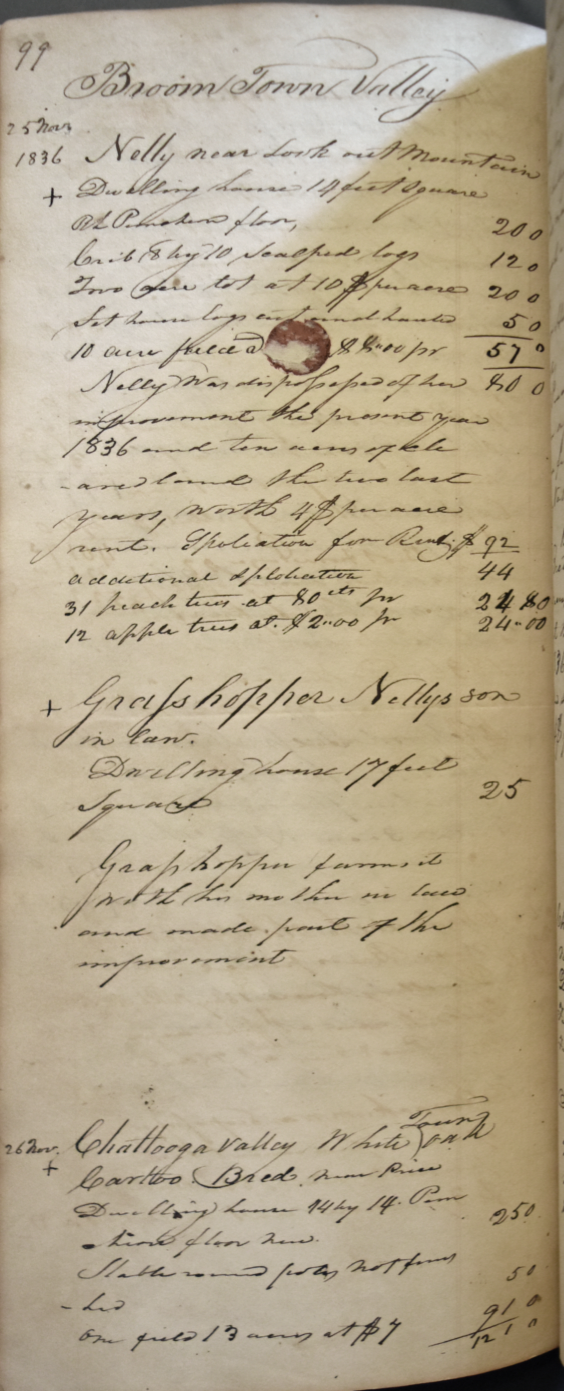 99
Broom Town Valley
25 Nov.
1836 Nelly near Look out Mountain
+ Dwelling house 14 feet square
Puncheon floor, 20 0
Crib 8 by 10 Scalped logs 12 0
Two acre lot at 10 $ per acre 20 0
Set house logs cut and hauled 5 0
10 acre field $ 8.00 pr 57 0
Nelly was dispossessed of her 80 0
improvement the present year
1836 and ten acres of cle
-ared land the two last
years, worth 4 $ per acre
rent. Spoliation for Rent, $ 92
additional Spoliation 44
31 peach trees at 80 cts pr 24 80
12 apple trees at $2.00 pr 24.00
+ Grasshopper Nellys son
in law.
Dwelling house 17 feet
Square 25
Grasshopper farms it
with his mother in law
and made part of the
improvement
26 Nov. Chattooga Valley White Town
+ Bred near
Dwelling house 14 by 14. Pun
-cheon floor new. 25 0
Stable round poles not finis
-hed 5 0
One field 13 acres at $7 91 0
12 1 0